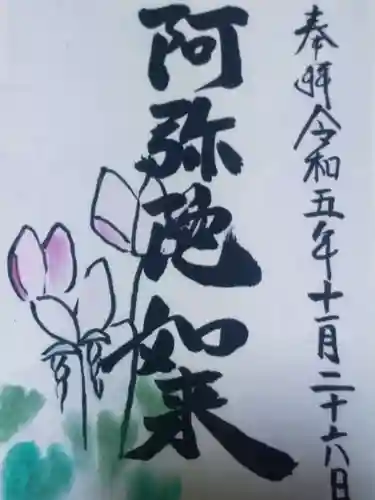 奉拝令和五年十一月二十六日
阿弥陀如来